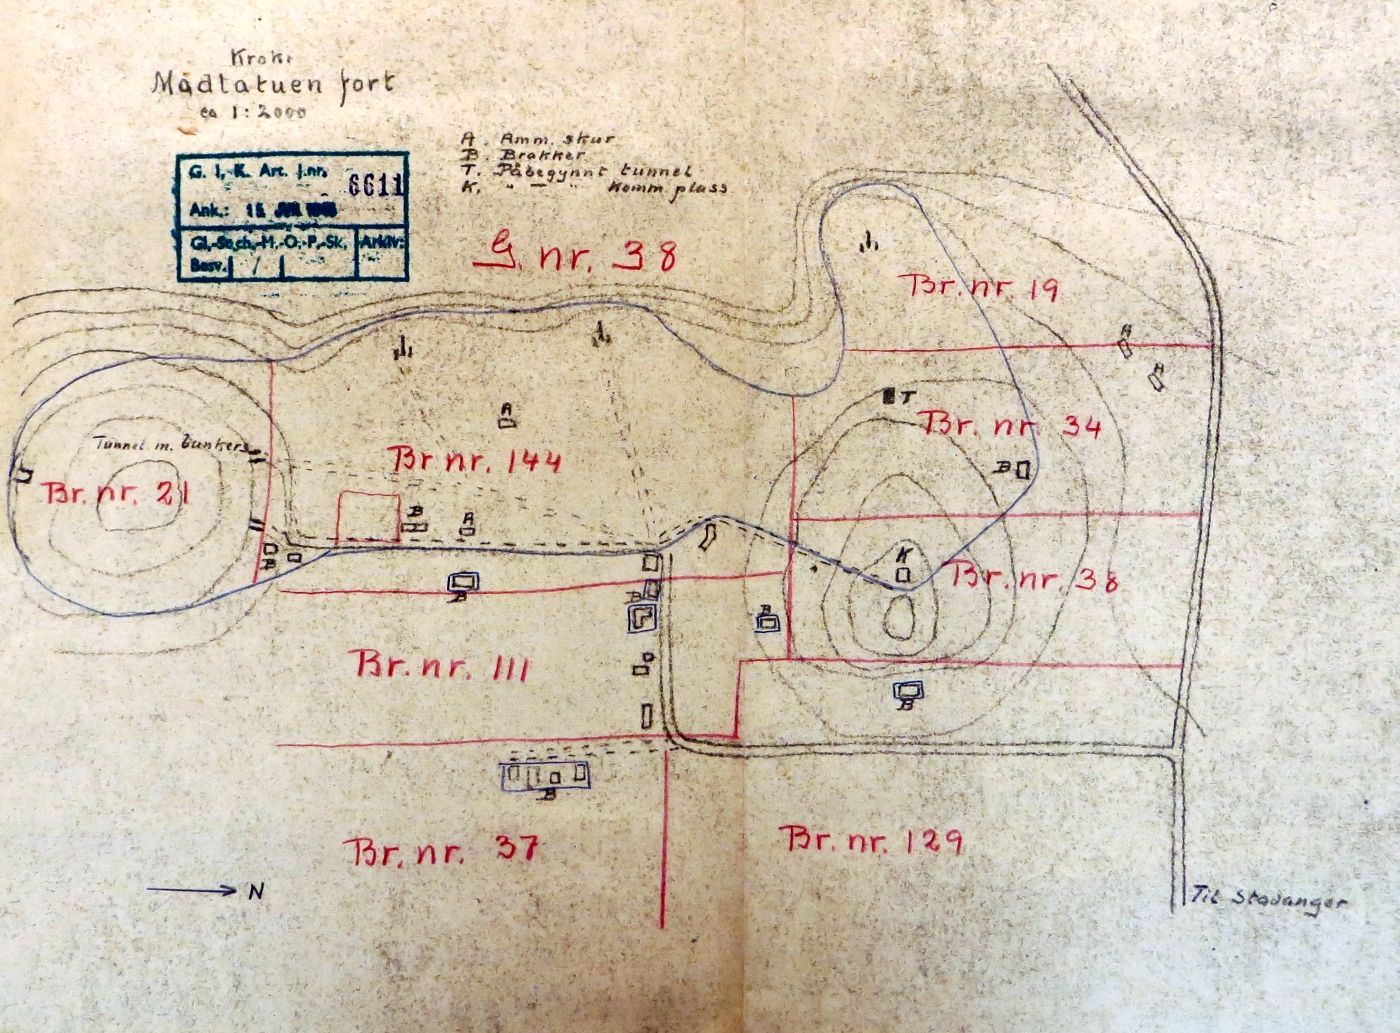 Kroki
Madlatuen fort
ca 1:2000
A. Amm. skur
B. Brakker
T. Påbegynnt tunnel
K. " — " Komm. plass
G. I.-K. Art. J.nr. 6611
Ank.: 15
Gl.-Sach.-M.-O.-P.-Sk. Arkiv:
Besv.
G. nr. 38
Br. nr. 19
A
A
T
Br. nr. 34
A
Tunnel m. bunkers
Br nr. 144
B
Br. nr. 21
B
A
B
K
Br. nr. 38
B
B
B
Br. nr. 111
B
B
Br. nr. 37
Br. nr. 129
N
Til Stavanger